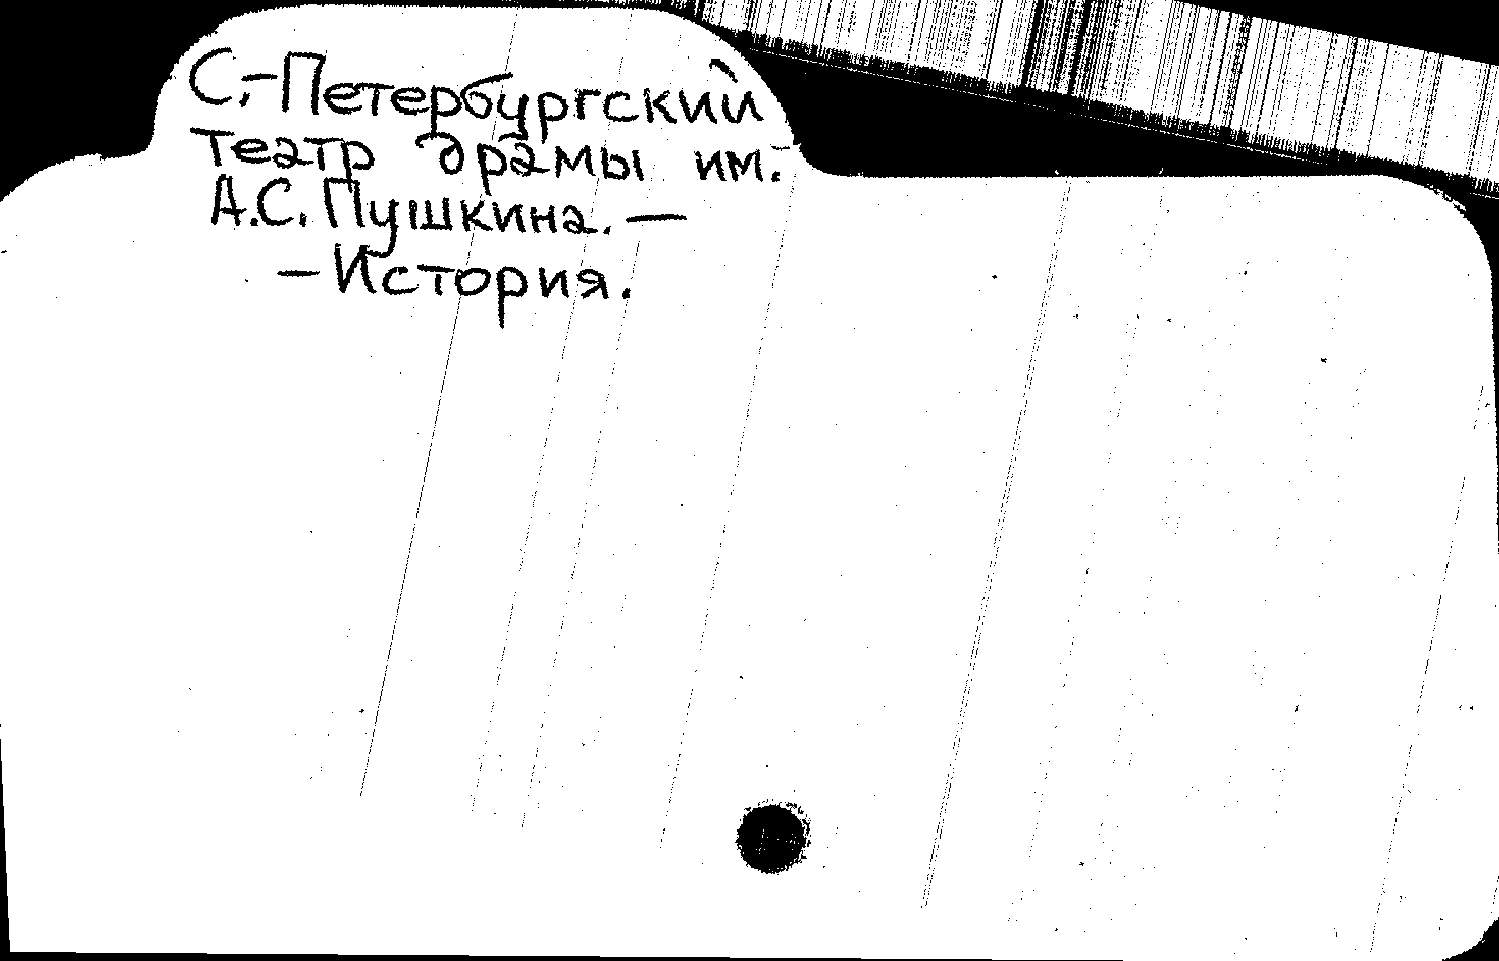 С,-Петербургский
театр драмы им.
А.С. Пушкина. —
— История.